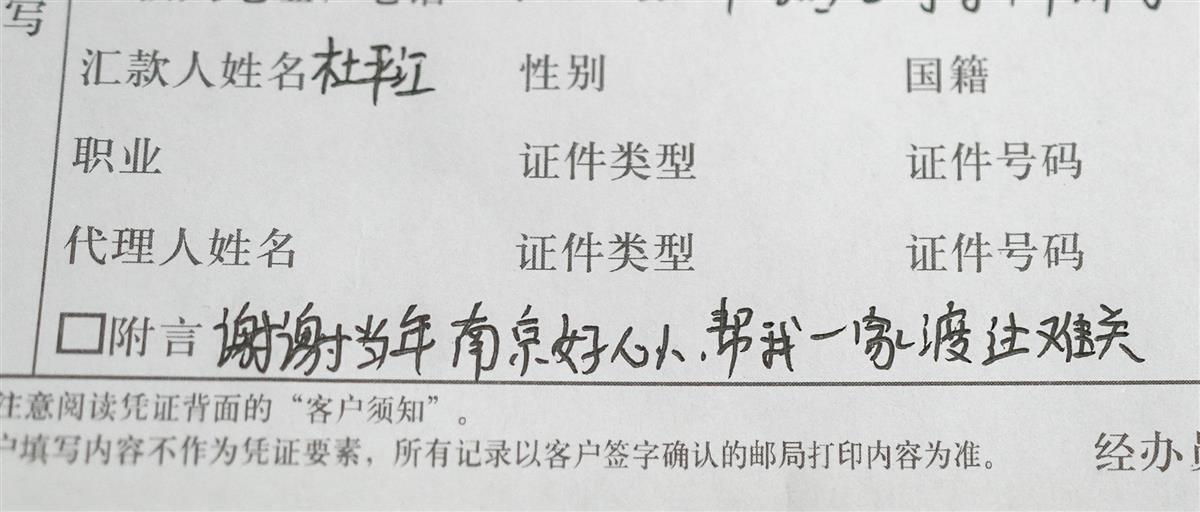 写
汇款人姓名 杜平江 性别 国籍
职业 证件类型 证件号码
代理人姓名 证件类型 证件号码
附言 谢谢当年南京好心人,帮我一家渡过难关
注意阅读凭证背面的“客户须知”。
户填写内容不作为凭证要素,所有记录以客户签字确认的邮局打印内容为准。
经办员